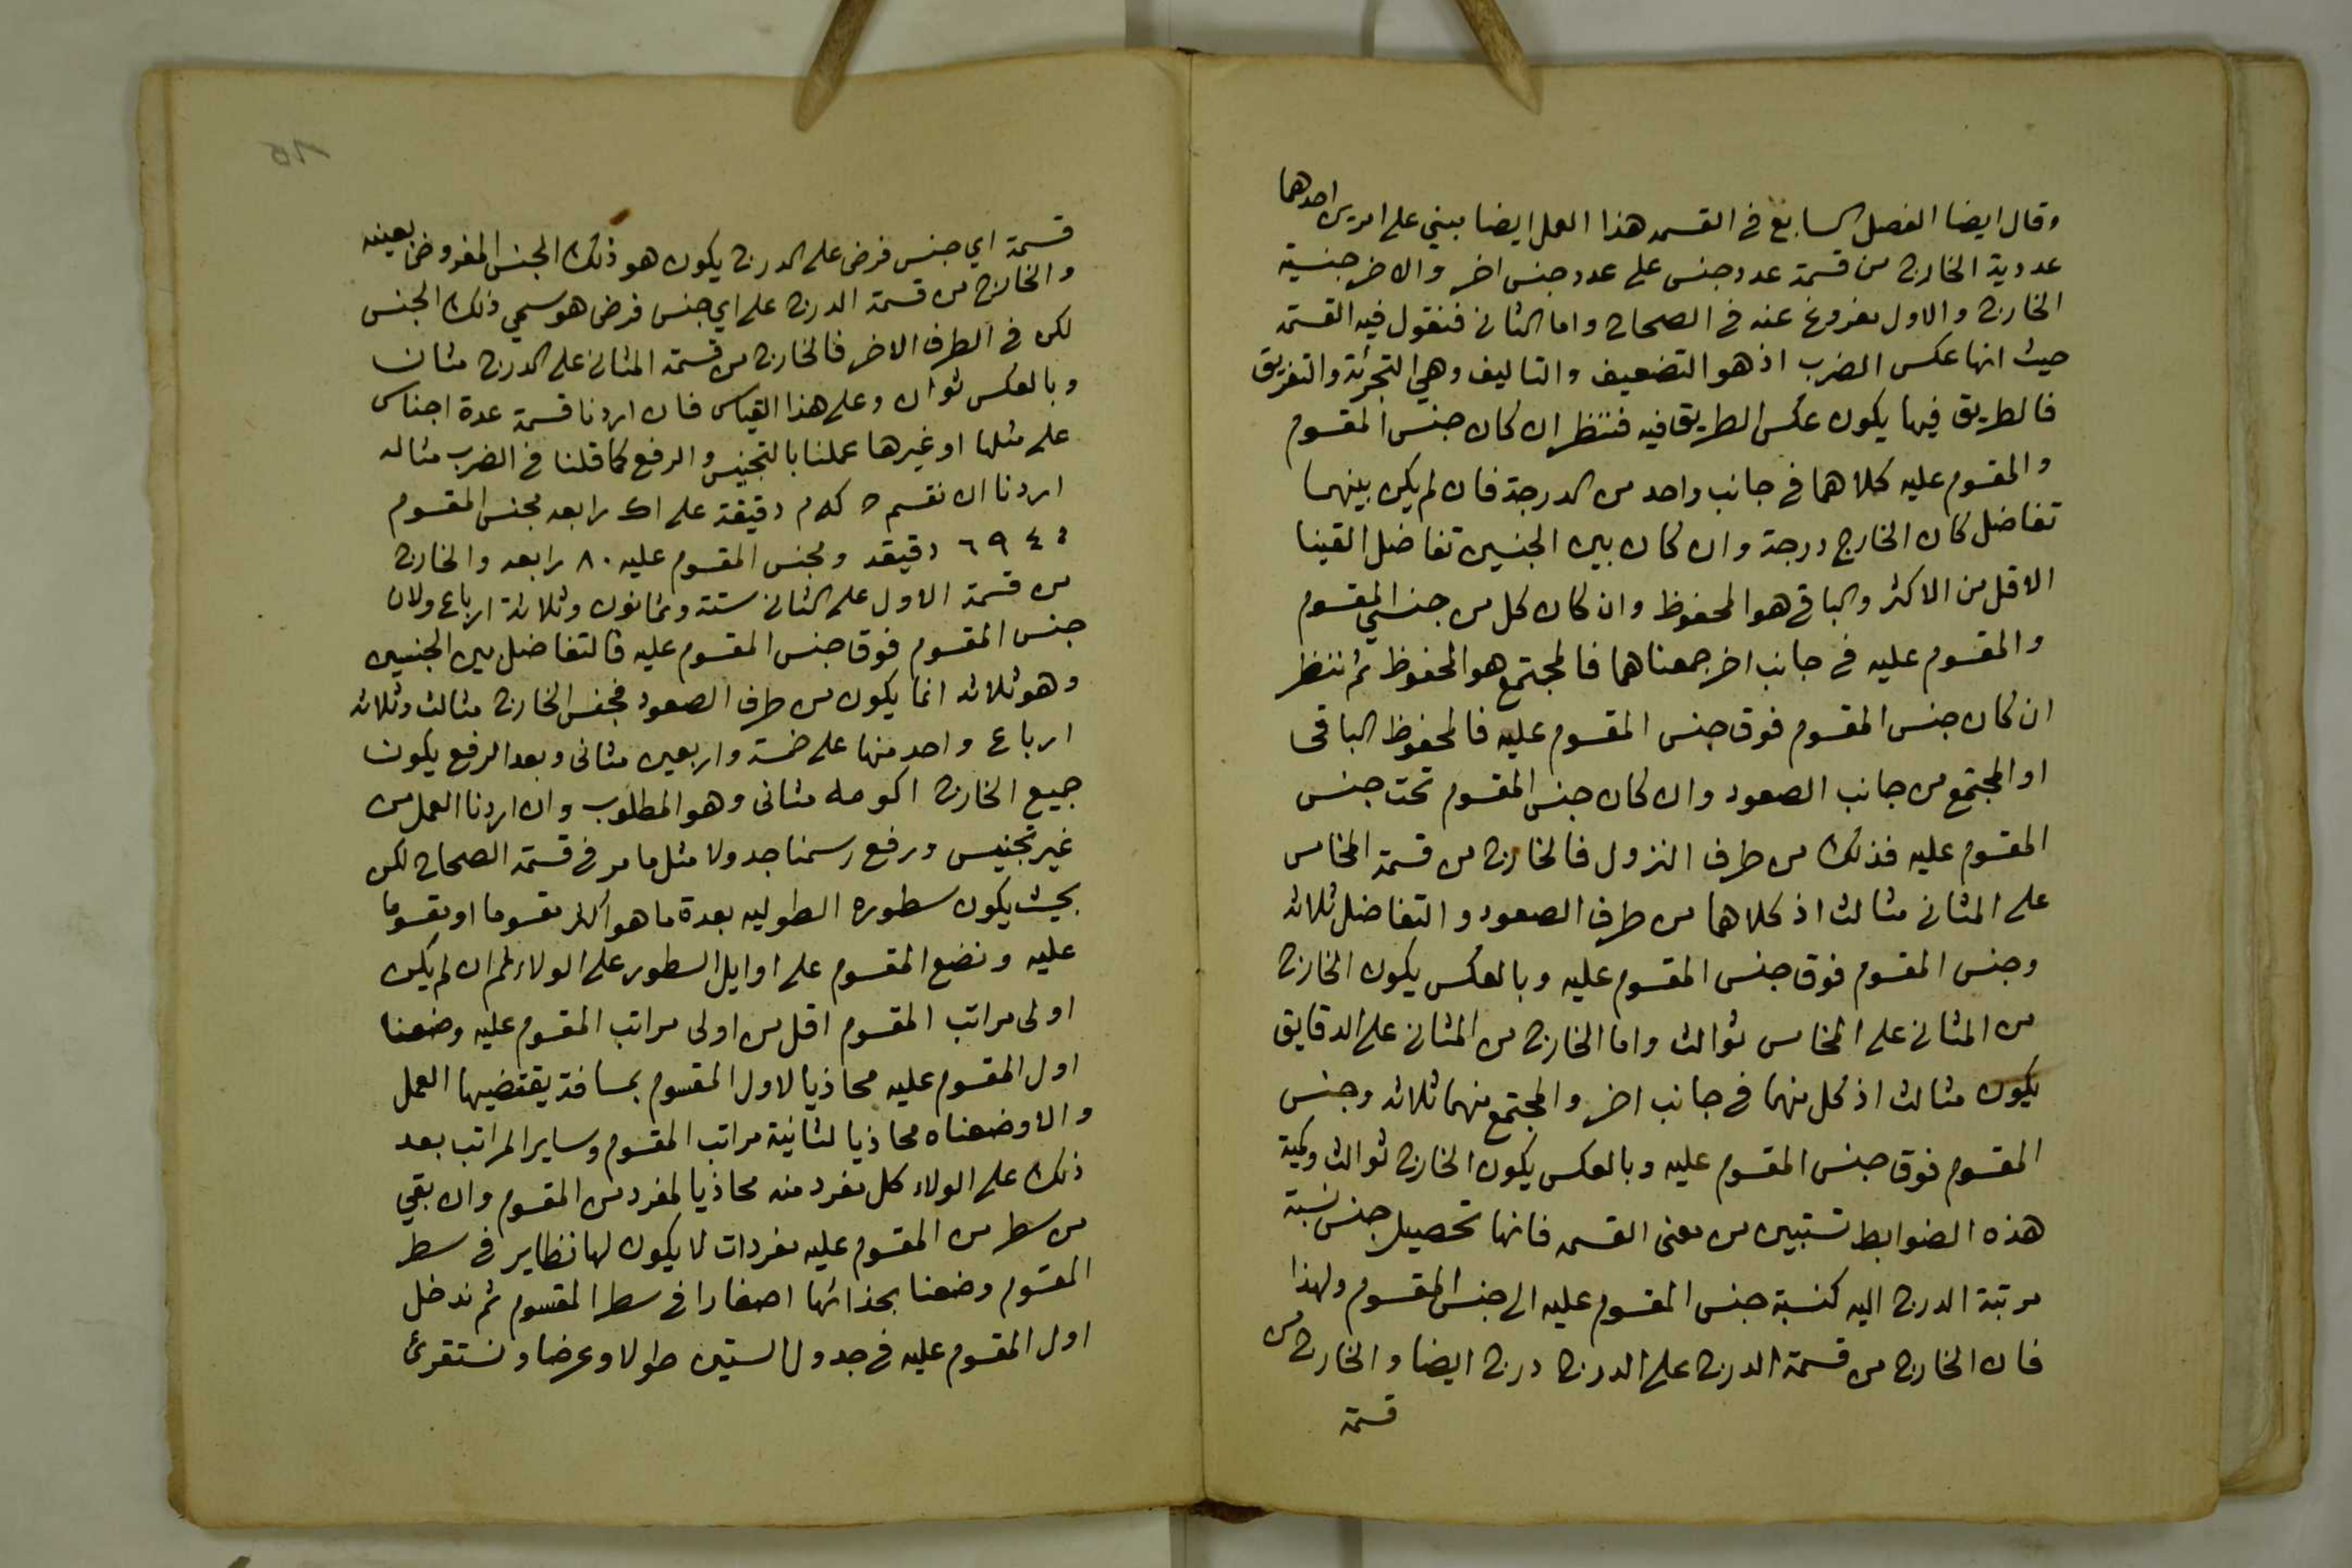 وقال ايضا الفصل السابع في القسمه هذا العمل ايضا يبني على امرين احدهما
عددية الخارج من قسمة عدد جنس على عدد جنس اخر والاخر جنسية
الخارج والاول مفروغ عنه في الصحاح واما الثاني فنقول فيه القسمه
حيث انها عكس الضرب اذ هو التضعيف والتاليف وهي التجزئة والتفريق
فالطريق فيها يكون عكس الطريق فيه فننظر ان كان جنس المقسوم
والمقسوم عليه كلاهما في جانب واحد من الدرجة فان لم يكن بينهما
تفاضل كان الخارج درجة وان كان بين الجنسين تفاضل القينا
الاقل من الاكثر والباقي هو المحفوظ وان كان كل من جنسي المقسوم
والمقسوم عليه في جانب اخر جمعناهما فالمجتمع هو المحفوظ ثم ننظر
ان كان جنس المقسوم فوق جنس المقسوم عليه فالمحفوظ الباقي
او المجتمع من جانب الصعود وان كان جنس المقسوم تحت جنس
المقسوم عليه فذلك من طرف النزول فالخارج من قسمة المخامس
على المثاني مثالث اذ كلاهما من طرف الصعود والتفاضل ثلاثه
وجنس المقسوم فوق جنس المقسوم عليه وبالعكس يكون الخارج
من المثاني على المخامس ثوالث واما الخارج من المثاني على الدقايق
يكون مثالث اذ كل منهما في جانب اخر والمجتمع منهما ثلاثه وجنس
المقسوم فوق جنس المقسوم عليه وبالعكس يكون الخارج ثوالث ولمية
هذه الضوابط تستبين من معنى القسمه فانها تحصيل جنس نسبة
مرتبة الدرج اليه كنسبة جنس المقسوم عليه الى جنس المقسوم ولهذا
فان الخارج من قسمة الدرج على الدرج درج ايضا والخارج من
قسمة
قسمة اي جنس فرض على الدرج يكون هو ذلك الجنس المفروض بعينه
والخارج من قسمة الدرج على اي جنس فرض هو سمي ذلك الجنس
لكن في الطرف الاخر فالخارج من قسمة المثاني على الدرج مثان
وبالعكس ثوان وعلى هذا القياس فان اردنا قسمة عدة اجناس
على مثلها او غيرها عملنا بالتجنيس والرفع كما قلنا في الضرب مثاله
اردنا ان نقسم دقيقة على اك رابعه مجنس المقسوم
٦٩٤٠ دقيقه ومجنس المقسوم عليه ٨٠ رابعه والخارج
من قسمة الاول على الثاني ستة وثمانون وثلاثة ارباع ولان
جنس المقسوم فوق جنس المقسوم عليه فالتفاضل بين الجنسين
وهو ثلاثه انما يكون من طرف الصعود فجنس الخارج مثالث وثلاثه
ارباع واحد منها على خمسة واربعين مثاني وبعد الرفع يكون
جميع الخارج اكومه مثاني وهو المطلوب وان اردنا العمل من
غير تجنيس ورفع رسمنا جدولا مثل ما مر في قسمة الصحاح لكن
بحيث يكون سطوره الطوليه بعدة ما هو اكثر مقسوما او مقسوما
عليه ونضع المقسوم على اوايل السطور على الولاء ثم ان لم يكن
اولى مراتب المقسوم اقل من اولى مراتب المقسوم عليه وضعنا
اول المقسوم عليه محاذيا لاول المقسوم بمسافة يقتضيها العمل
والا وضعناه محاذيا لثانية مراتب المقسوم وساير المراتب بعد
ذلك على الولاء كل مفرد منه محاذيا لمفرد من المقسوم وان بقي
من سطر من المقسوم عليه مفردات لا يكون لها نظاير في سطر
المقسوم وضعنا بحذائها اصفارا في سطر المقسوم ثم ندخل
اول المقسوم عليه في جدول الستين طولا وعرضا ونستقرئ